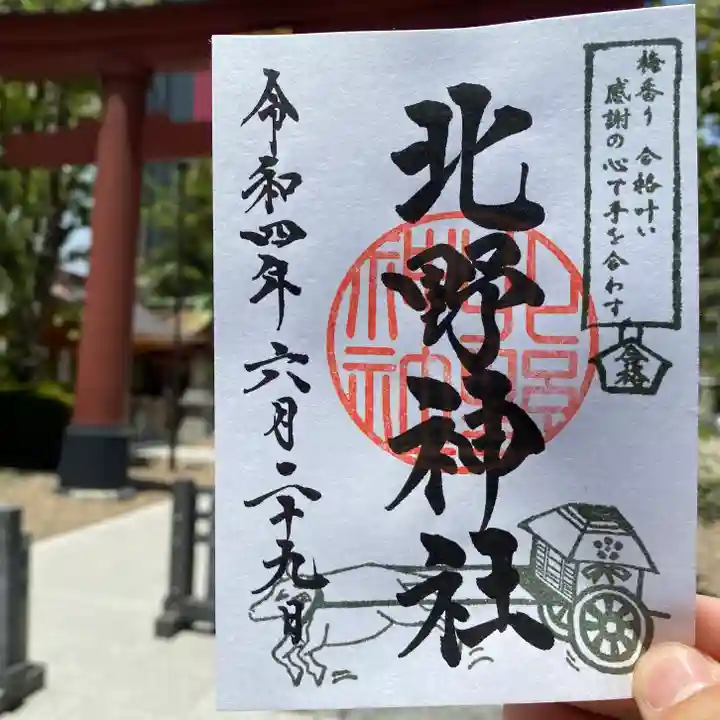 梅香り 合格叶い
感謝の心で手を合わす
合格
北野神社
北野神社
令和四年六月二十九日